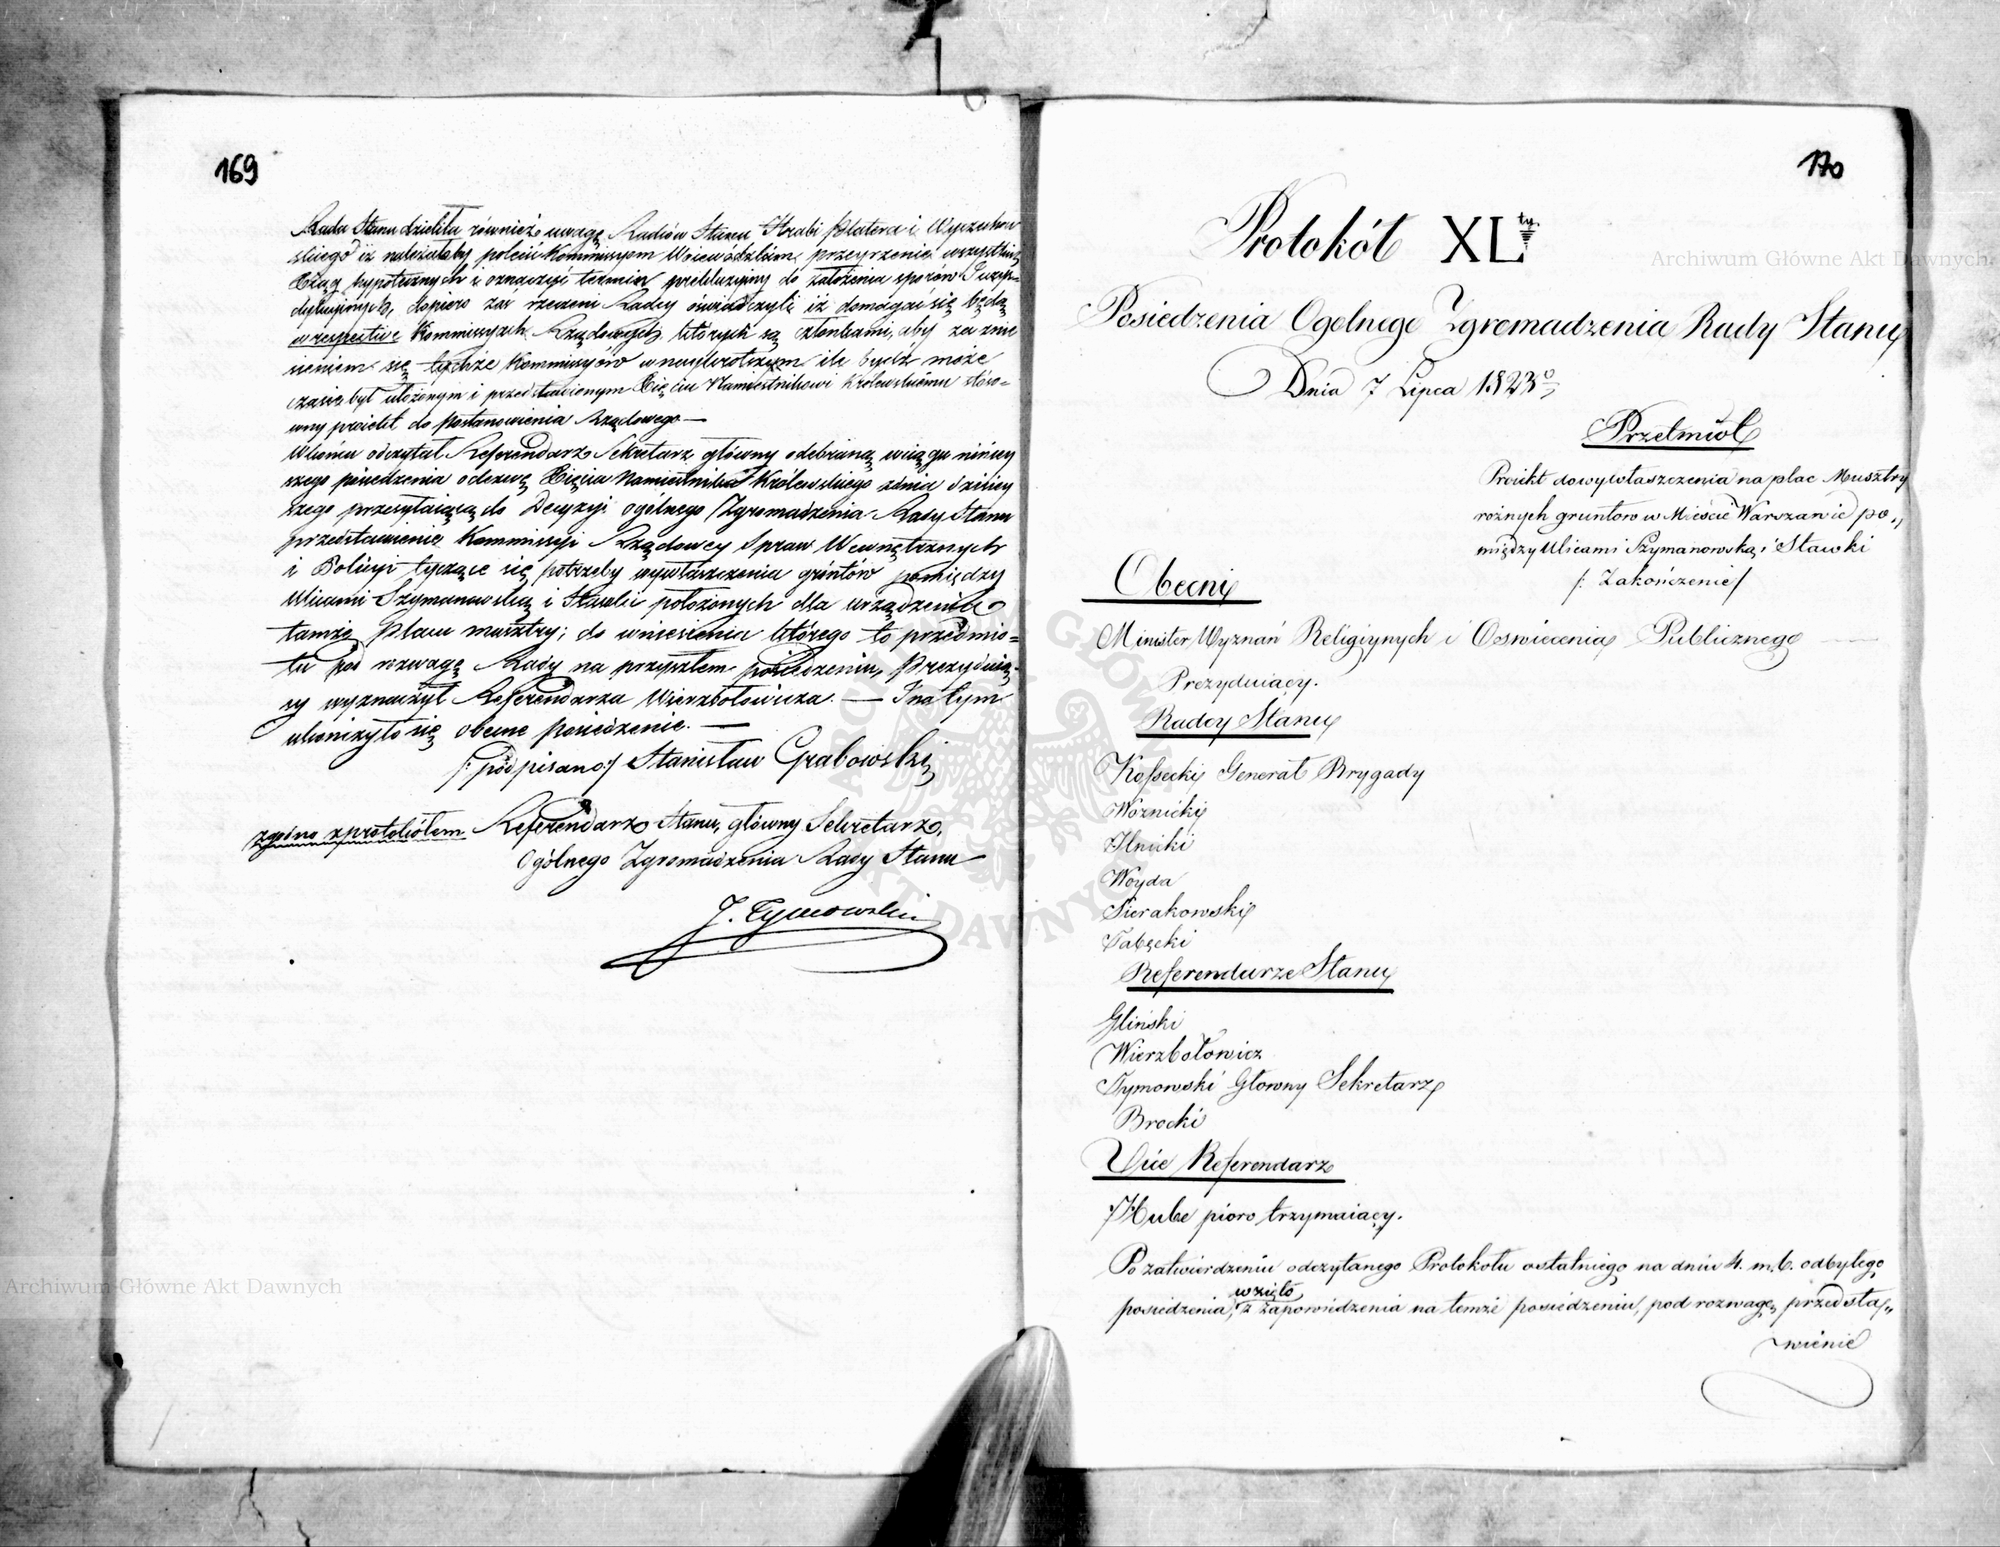 169
Rada Stanu dzieliła również uwagę Radców Stanu Hrabi Platera i Wyczechow
skiego iż należałoby polecić Kommissyom Woiewódzkim, przeyrzenie wszystkich
Xiąg hypotecznych i oznaczyć termin prekluzyiny do założenia sporów Juryz-
dykcyinych, dopiero zaś rzeczeni Radcy oświadczyli iż domagać się będą
w respective Kommissyach Rządowych których są członkami, aby za znie
sieniem się tychże Kommissyów w naykrótszym ile bydź może
czasie był ułożonym i przedstawionym Xięciu Namiestnikowi Królewskiemu stóso-
wny proiekt do Postanowienia Rządowego —
W końcu odczytał Referendarz Sekretarz główny odebraną w ciągu niniey
szego posiedzenia odezwę Xięcia Namiestnika Królewskiego z dnia dzisiey
szego przesyłaiącą do Decyzyi ogólnego Zgromadzenia Rady Stanu
przedstawienie Kommissyi Rządowey Spraw Wewnętrznych
i Policyi tyczące się potrzeby wywłaszczenia gróntów pomiędzy
Ulicami Szymanowską i Stawki położonych dla urządzenia
tamże placu musztry; do wniesienia którego to przedmio-
tu pod rozwagę Rady na przyszłem posiedzeniu, Prezyduią-
cy wyznaczył Referendarza Wierzbołowicza. — Na tym
ukończyło się obecne posiedzenie. —
/: podpisano:/ Stanisław Grabowski
zgodno z protokółem Referendarz Stanu, główny Sekretarz,
Ogólnego Zgromadzenia Rady Stanu
J. Tymowski
170
Protokół XLty
Posiedzenia Ogolnego Zgromadzenia Rady Stanu
Dnia 7 Lipca 1823o
Przedmiot
Proiekt do wywłaszczenia na plac Musztry
rożnych gruntow w Mieście Warszawie po„
między Ulicami Szymanowską i Stawki
/: Zakończenie/
Obecni
Minister Wyznań Religiynych i Oswiecenia Publicznego —
Prezyduiący.
Radcy Stanu
Kossecki Generał Brygady
Woznicki
Ilnicki
Woyda
Sierakowski
Tabęcki
Referendarze Stanu
Gliński
Wierzbołowicz
Tymowski Głowny Sekretarz
Brocki
Vice Referendarz
Hube pioro trzymaiący.
Po zatwierdzeniu odczytanego Protokołu ostatniego na dniu 4. m. b. odbytego
posiedzenia, wzięto z zapowiedzenia na temże posiedzeniu, pod rozwagę przedsta„
wienie
Archiwum Główne Akt Dawnych
Archiwum Główne Akt Dawnych
ARCHIWUM GŁÓWNE AKT DAWNYCH